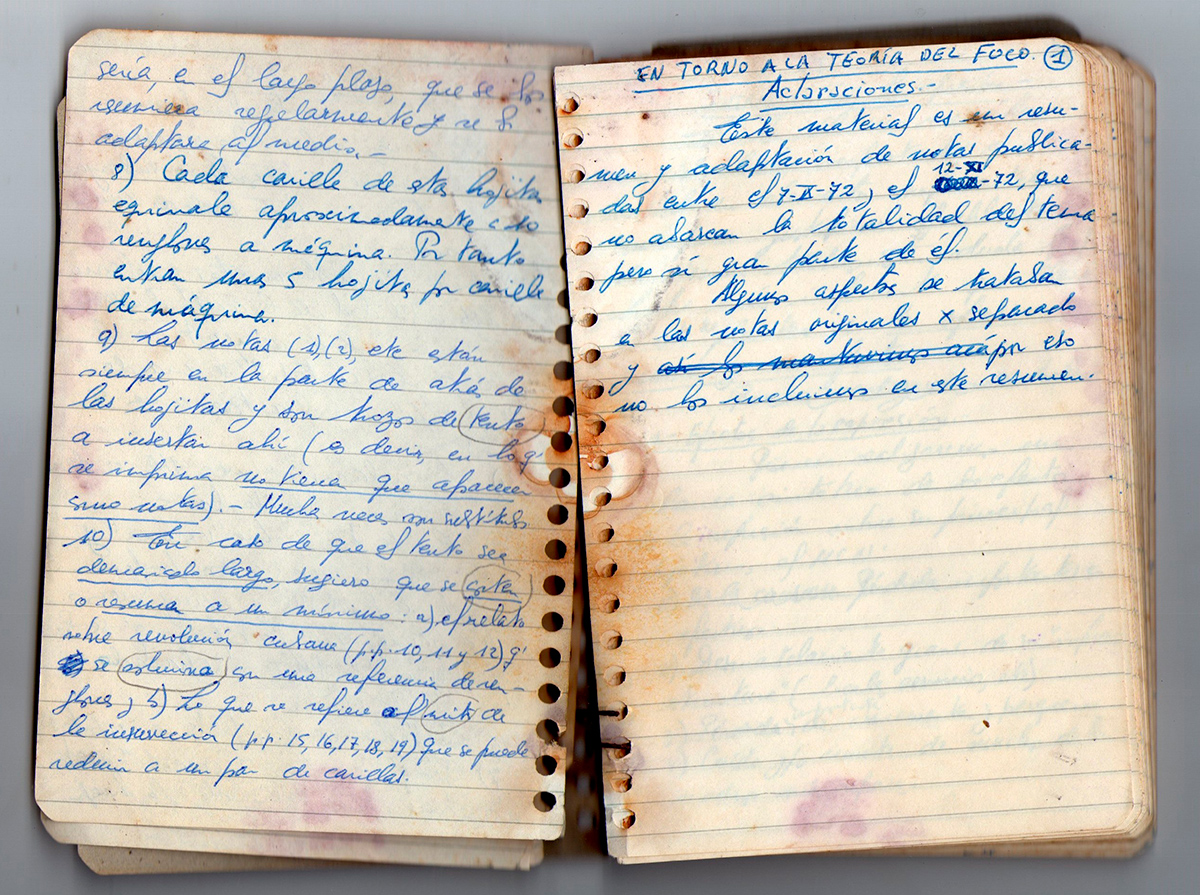 sería, en el largo plazo, que se los
resumiera regularmente y se lo
adaptara al medio.-
8) Cada carilla de estas hojitas
equivale aproximadamente a 10
renglones a máquina. Por tanto
entran unas 5 hojitas por carilla
de máquina.
9) Las notas (1), (2), etc están
siempre en la parte de atrás de
las hojitas y son trozos de texto
a insertar ahí (es decir, en lo q'
se imprima no tiene que aparecer
como notas).- Muchas veces son
10) En caso de que el texto sea
demasiado largo, sugiero que se
o resuman a un mínimo: a) el relato
sobre revolución cubana (pp. 10, 11 y 12) q'
se con una referencia de ren-
glones; b) Lo que se refiere al mito de
la insurrección (pp. 15, 16, 17, 18, 19) que se puede
reducir a un par de carillas.
EN TORNO A LA TEORÍA DEL FOCO. 1
Aclaraciones.-
Este material es un resu-
men y adaptación de notas publica-
das entre el 7-II-72, y el 12-XI-72, que
no abarcan la totalidad del tema
pero sí gran parte de él.
Algunos aspectos se trataban
en las notas originales x separado
y así los mantuvimos acá por eso
no los incluimos en este resumen.